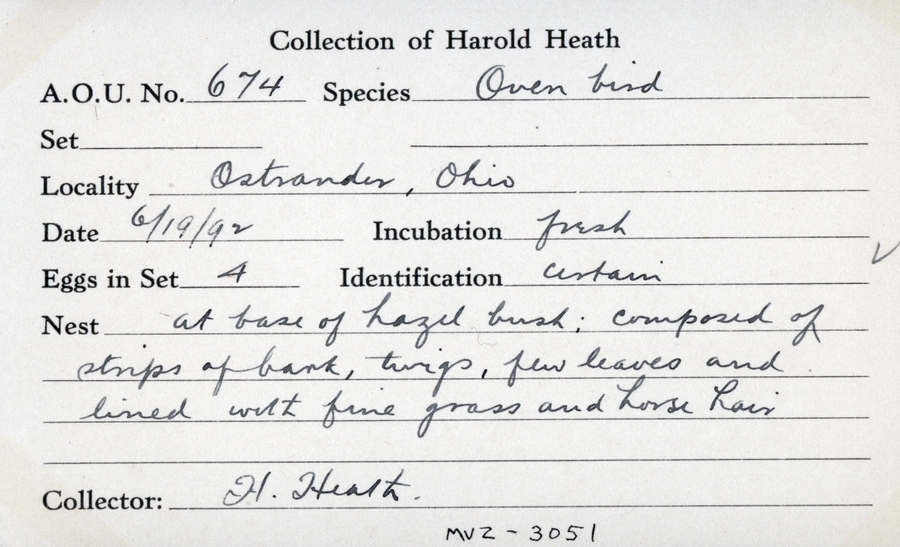 Collection of Harold Heath
A.O.U. No. 674 Species Oven bird
Set
Locality Ostrander, Ohio
Date 6/19/92 Incubation fresh
Eggs in Set 4 Identification certain
Nest at base of hazel bush; composed of
strips of bark, twigs, few leaves and
lined with fine grass and horse hair
Collector: H. Heath.
MVZ-3051